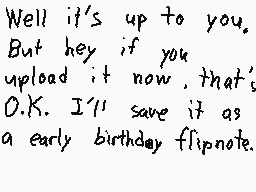 Well it's up to you.
But hey if you
upload it now, that's
O.K. I'll save it as
a early birthday flipnote.